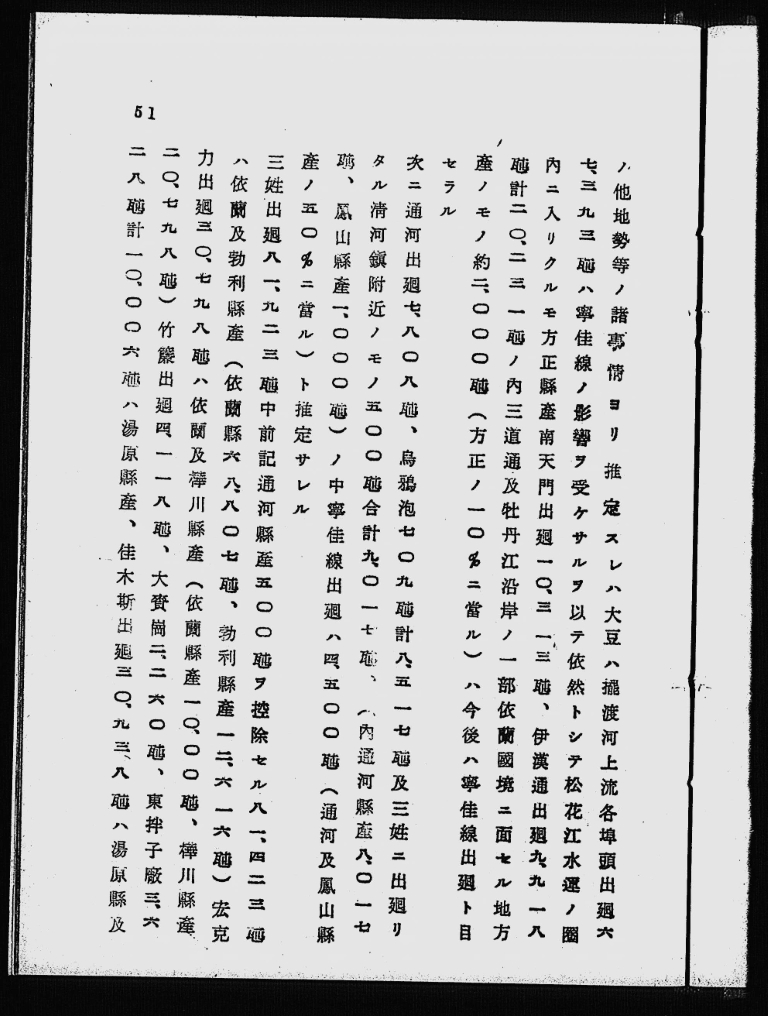 51
ノ他地勢等ノ諸事情ヨリ推定スレハ大豆ハ擺渡河上流各埠頭出廻六
七、三九三瓲ハ寧佳線ノ影響ヲ受ケサルヲ以テ依然トシテ松花江水運ノ圏
內ニ入リクルモ方正縣產南天門出廻一〇、三一三瓲、伊漢通出廻九、九一八
瓲計二〇、二三一瓲ノ內三道通及牡丹江沿岸ノ一部依蘭國境ニ面セル地方
產ノモノ約二、〇〇〇瓲(方正ノ一〇%ニ當ル)ハ今後ハ寧佳線出廻ト目
セラル
次ニ通河出廻七、八〇八瓲、烏鴉泡七〇九瓲計八、五一七瓲及三姓ニ出廻リ
タル淸河鎭附近ノモノ五〇〇瓲合計九、〇一七瓲、(內通河縣產八、〇一七
瓲、鳳山縣產一、〇〇〇瓲)ノ中寧佳線出廻ハ四、五〇〇瓲(通河及鳳山縣
產ノ五〇%ニ當ル)ト推定サレル
三姓出廻八一、九二三瓲中前記通河縣產五〇〇瓲ヲ控除セル八一、四二三瓲
ハ依蘭及勃利縣產(依蘭縣六八、八〇七瓲、勃利縣產一二、六一六瓲)宏克
力出廻三〇、七九八瓲ハ依蘭及樺川縣產(依蘭縣產一〇、〇〇瓲、樺川縣產
二〇、七九八瓲)竹簾出廻四、一一八瓲、大賚崗二、二六〇瓲、東拌子廠三、六
二八瓲計一〇、〇〇六瓲ハ湯原縣產、佳木斯出廻三〇、九三八瓲ハ湯原縣及